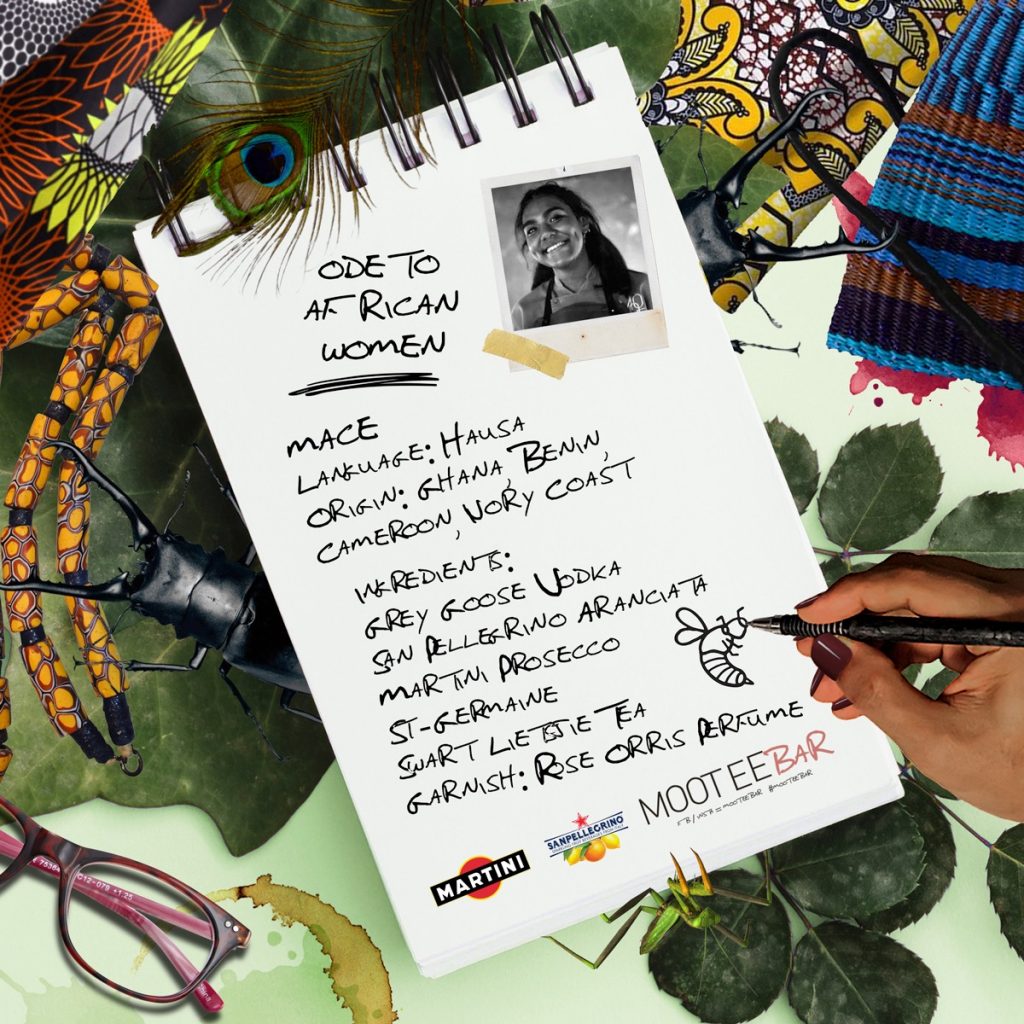 ODE TO
AFRICAN
WOMEN
MACE
LANGUAGE: HAUSA
ORIGIN: GHANA, BENIN,
CAMEROON, IVORY COAST
INGREDIENTS:
GREY GOOSE VODKA
SAN PELLEGRINO ARANCIATA
MARTINI PROSECCO
ST-GERMAINE
SWART LIETSTIE TEA
GARNISH: ROSE ORRIS PERFUME
MOOTEEBAR
FB/INSB = MOOTEEBAR @MOOTEEBAR
SANPELLEGRINO
MARTINI
C12-078 +1.25